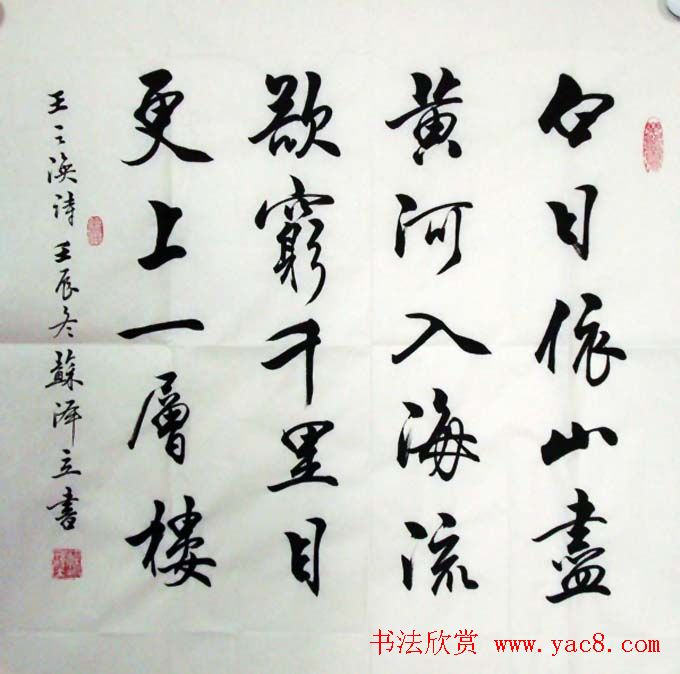 白日依山盡
黄河入海流
欲窮千里目
更上一層樓
王之渙詩 壬辰冬 蘇澤立書
书法欣赏 www.yac8.com